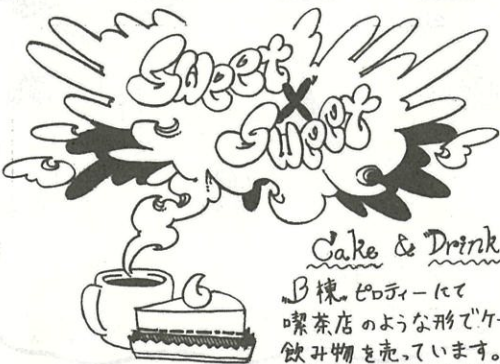 Sweet
×
Sweet
Cake & Drink
"B棟" ピロティーにて
喫茶店のような形でケー
飲み物を売っています。